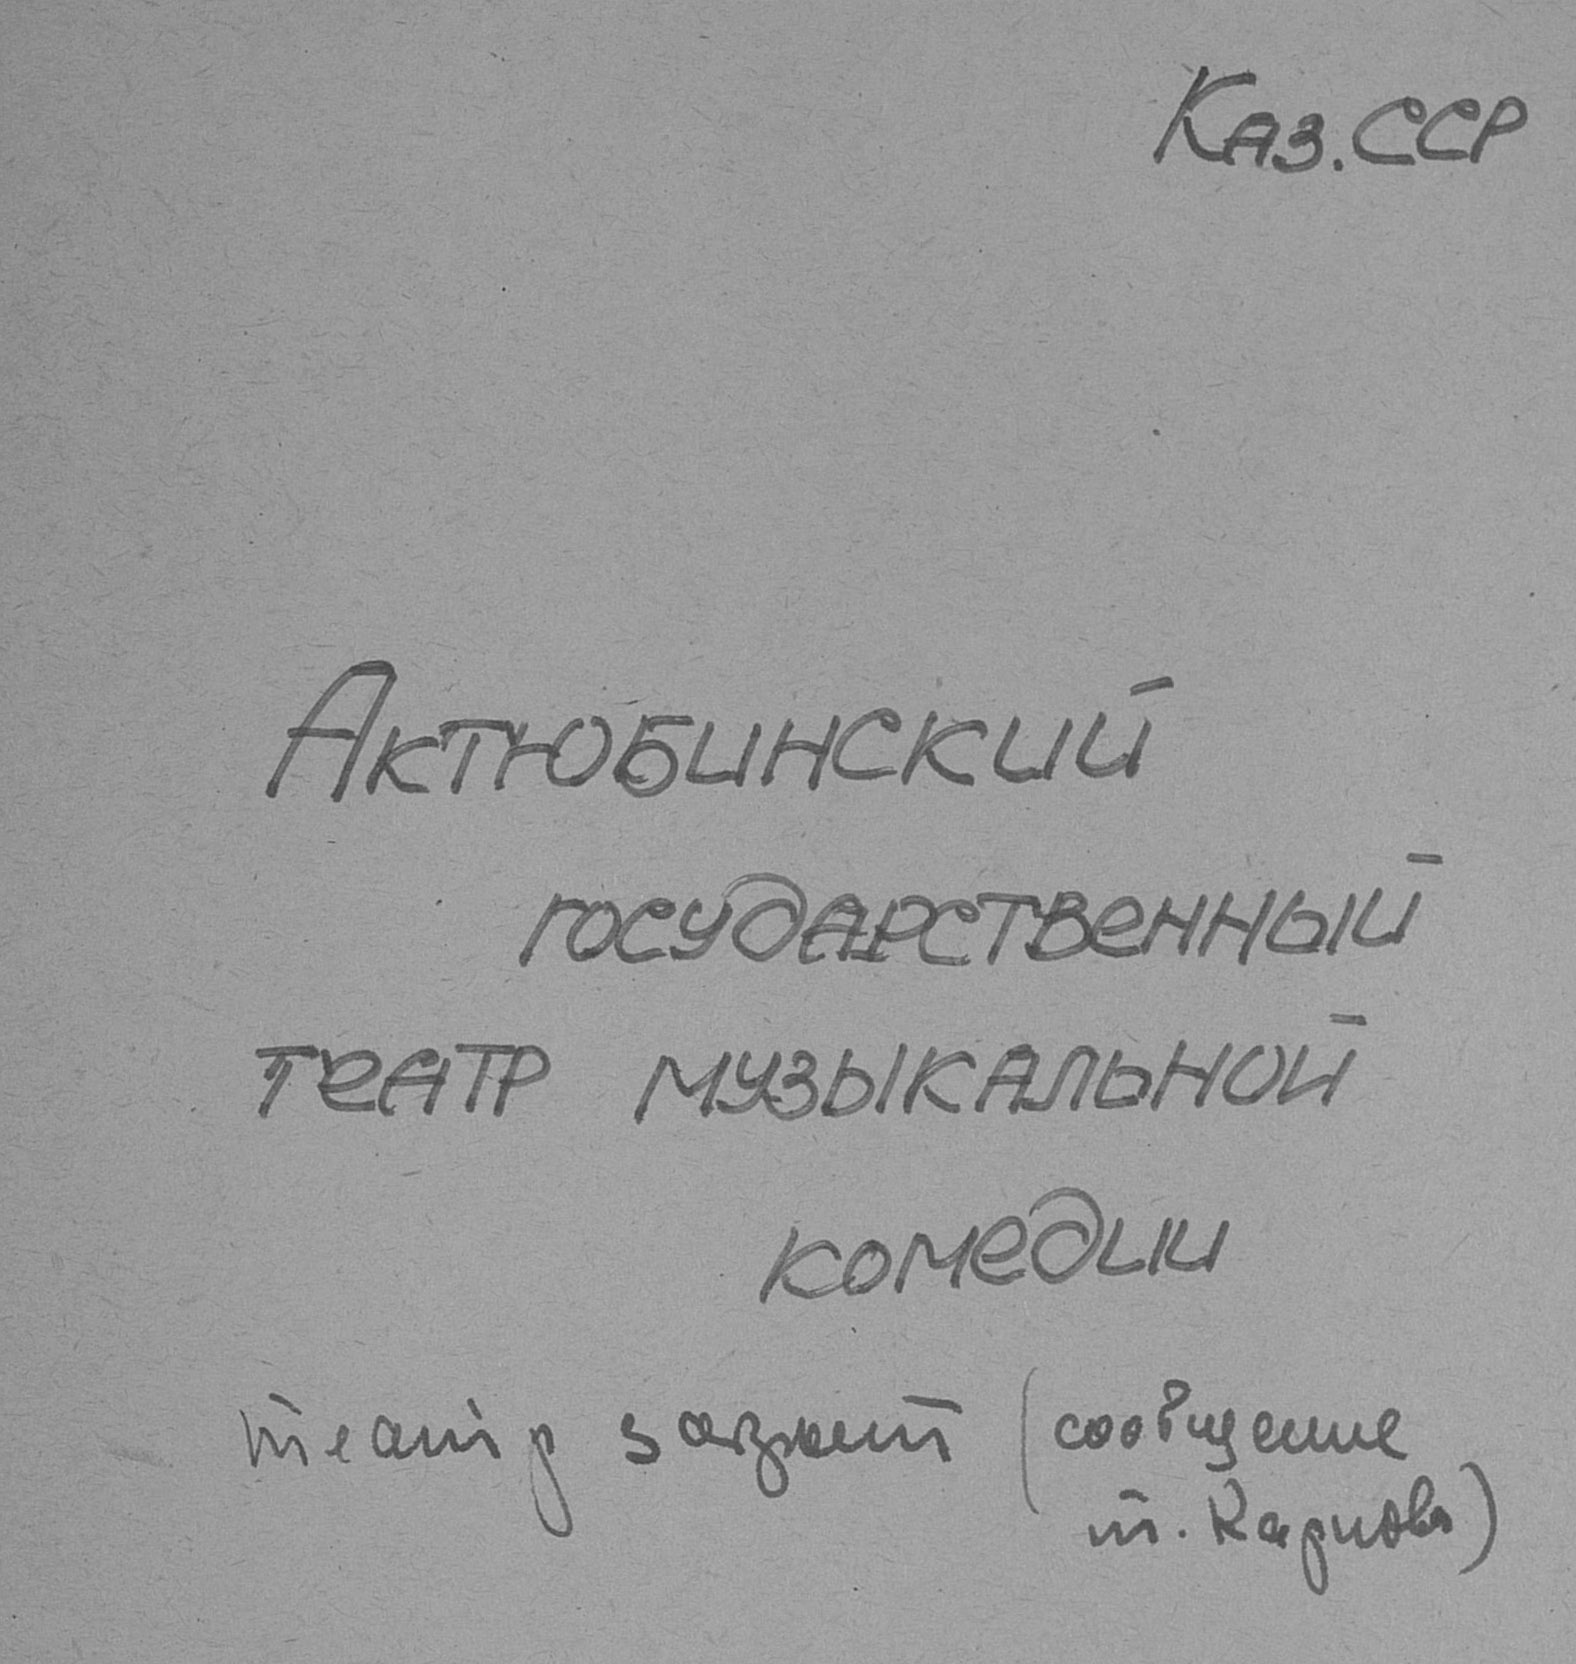 Каз. ССР
Актюбинский
государственный
театр музыкальной
комедии
театр закрыт (сообщение
т. Карпова)